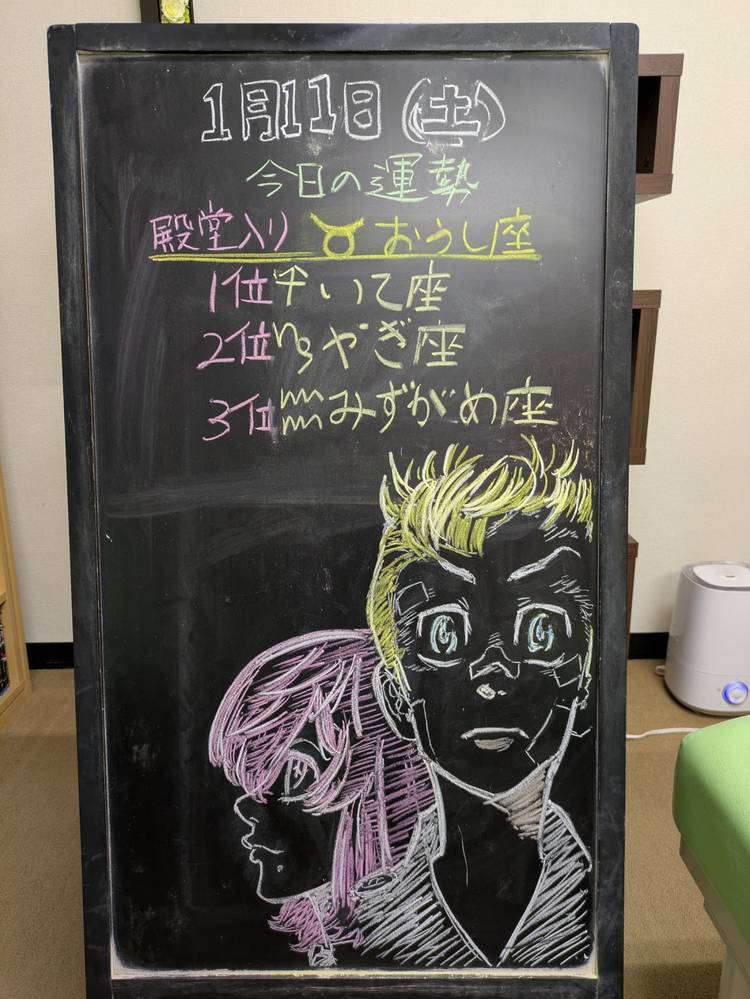 1月11日(土)
今日の運勢
殿堂入り ♉ おうし座
1位 ♐ いて座
2位 ♑ やぎ座
3位 ♒ みずがめ座